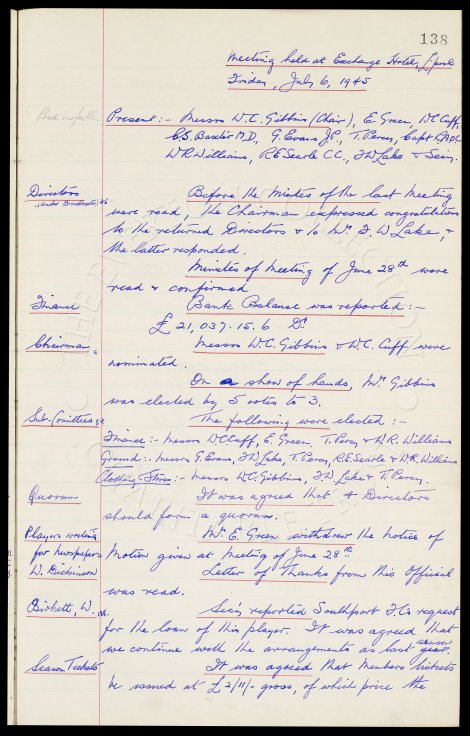 138
Meeting held at Exchange Hotel, L'pool
Friday, July 6, 1945
Read in full.
Present:- Messrs W.C. Gibbins (Chair), E. Green, W.C. Cuff,
C.S. Baxter M.D., G. Evans J.P., T. Percy, Capt
W.R. Williams, R.E. Searle C.C., F.W. Lake & Secy.
Directors
Before the Minutes of the last Meeting
were read, the Chairman expressed congratulations
to the returned Directors & to Mr F. W. Lake, &
the latter responded.
Minutes of Meeting of June 28th were
read & confirmed
Finance
Bank Balance was reported:-
£21,037.15.6 Dr
Chairman
Messrs W.C. Gibbins & W.C. Cuff were
nominated.
On a show of hands, Mr Gibbins
was elected by 5 votes to 3.
Sub. Cmittees
The following were elected:-
Finance:- Messrs W.C. Cuff, E. Green, T. Percy & W.R. Williams
Ground:- Messrs G. Evans, F.W. Lake, T. Percy, R.E. Searle & W.R. Williams
Messrs W.C. Gibbins, F.W. Lake & T. Percy.
Quorum
It was agreed that 4 Directors
should form a quorum.
Players writing
for Newspapers
Mr E. Green withdrew the notice of
Motion given at Meeting of June 28th.
W. Dickinson
Letter of Thanks from this Official
was read.
Birkett, W.
Secy reported Southport F.C's request
for the loan of this player. It was agreed that
we continue with the arrangements as last season
year.
Season Tickets
It was agreed that Members tickets
be issued at £2/11/- gross, of which price the